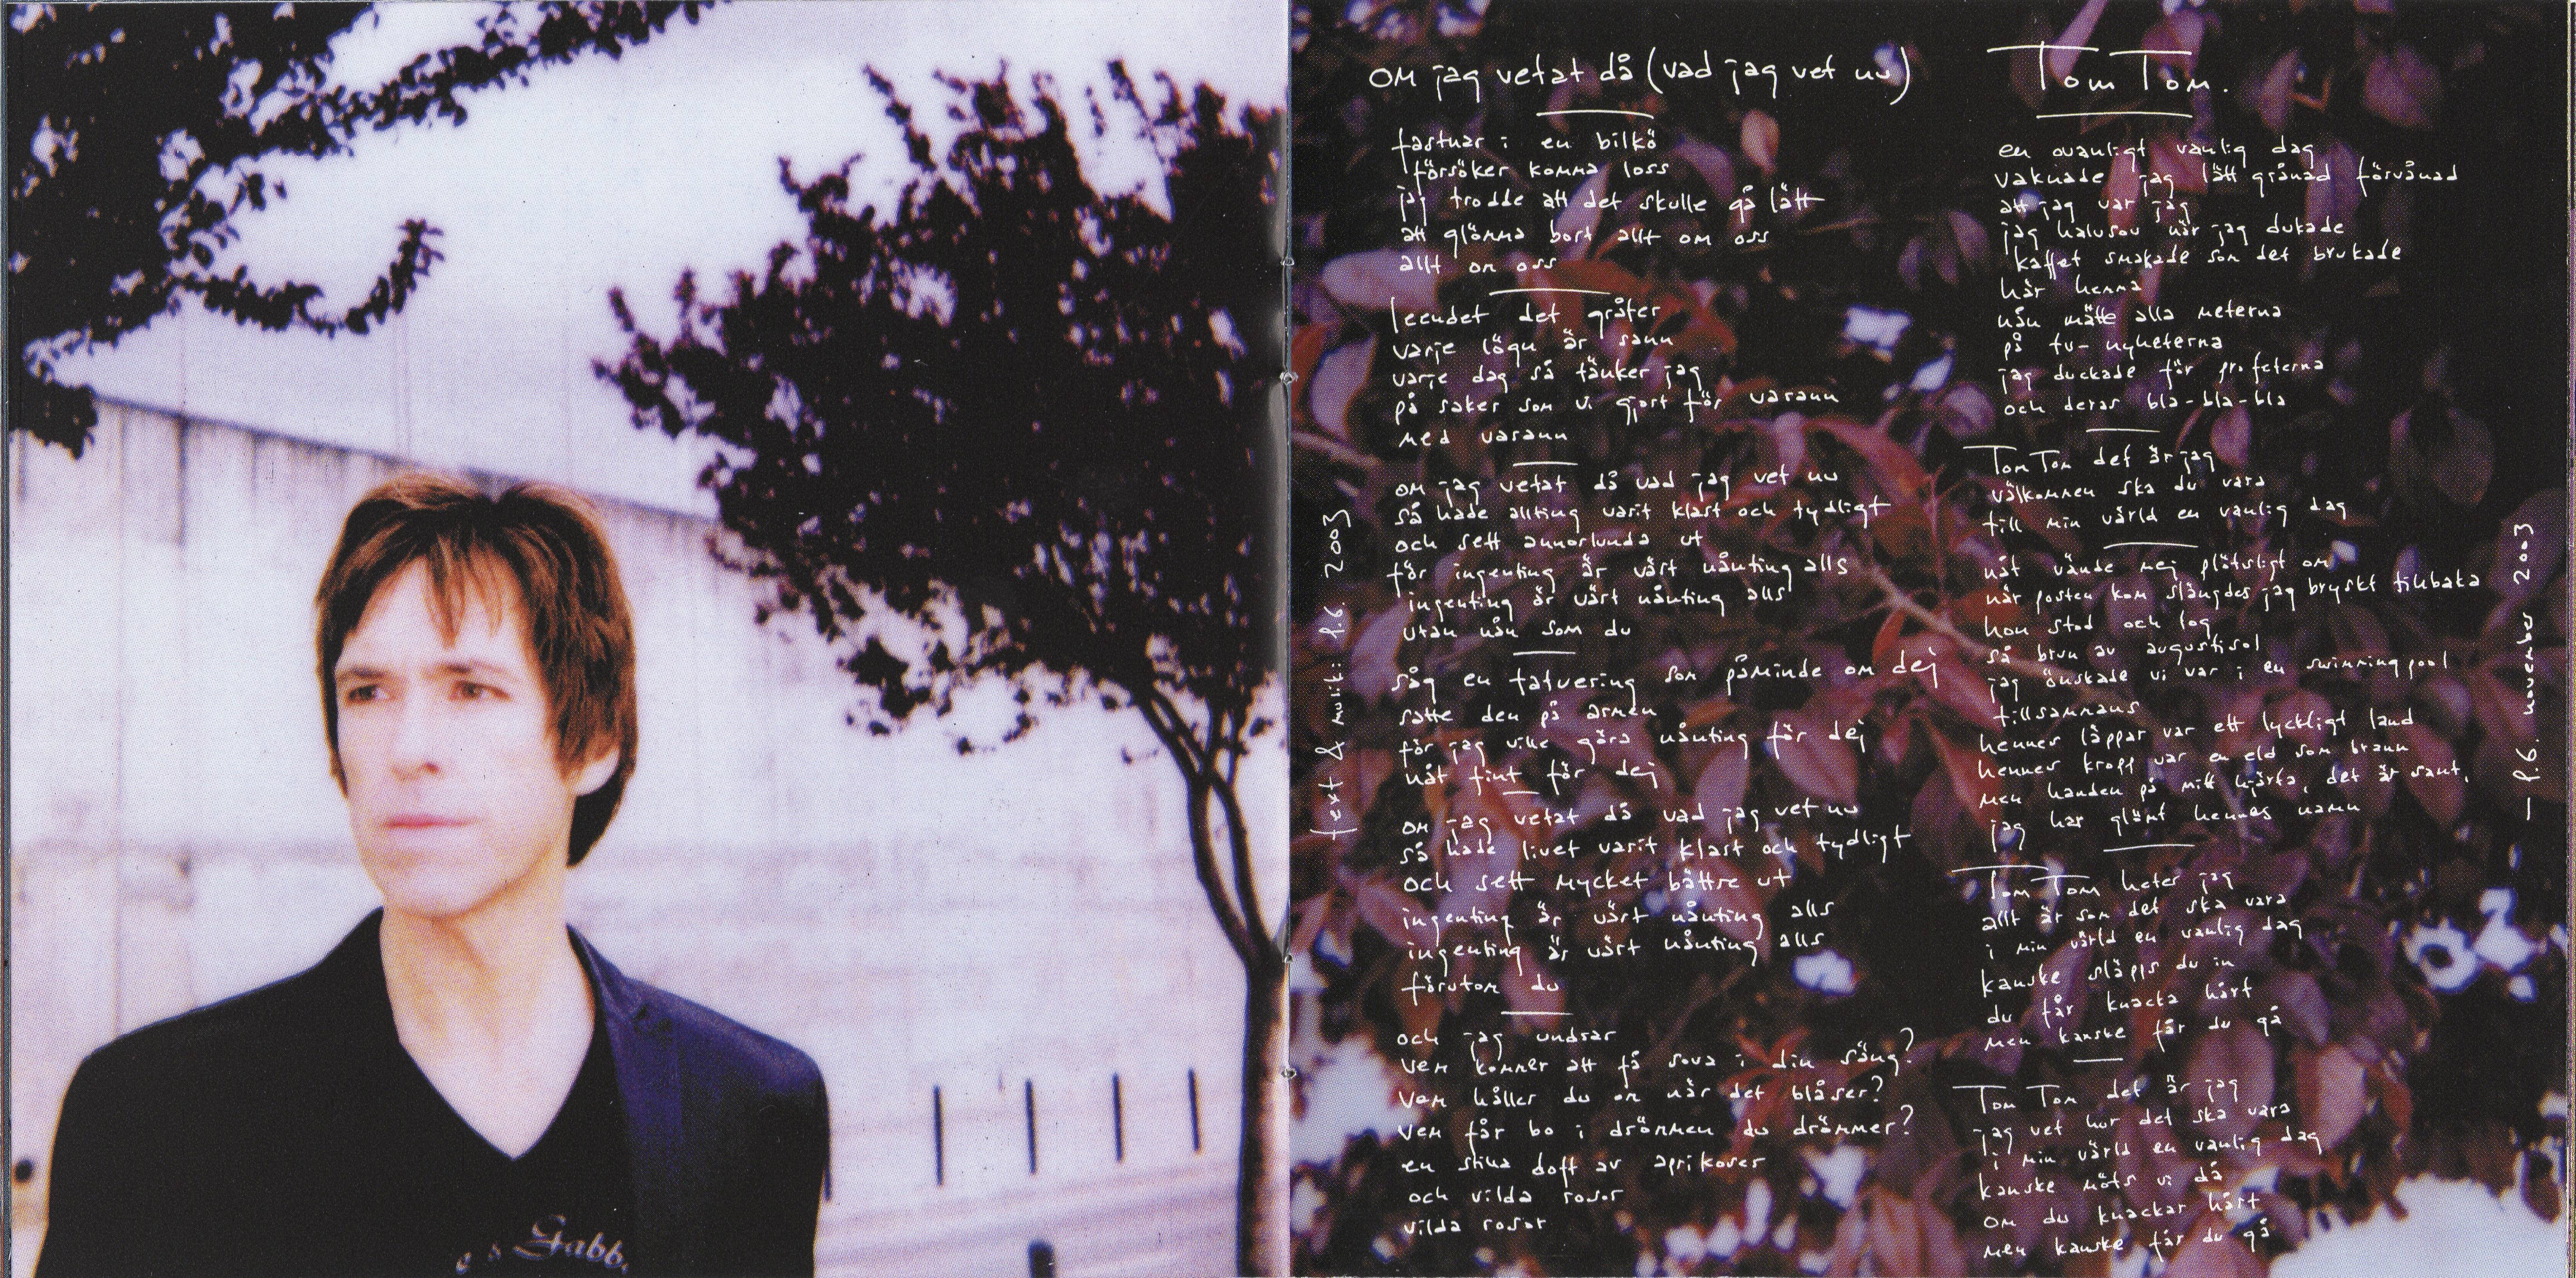 Gabb
om jag vetat då (vad jag vet nu)
fastnar i en bilkö
försöker komma loss
jag trodde att det skulle gå lätt
att glömma bort allt om oss
allt om oss
leendet det gråter
varje lögn är sann
varje dag så tänker jag
på saker som vi gjort för varann
med varann
om jag vetat då vad jag vet nu
så hade allting varit klart och tydligt
och sett annorlunda ut
för ingenting är värt nånting alls
ingenting är värt nånting alls
utan nån som du
såg en tatuering som påminde om dej
satte den på armen
för jag ville göra nånting för dej
nåt fint för dej
om jag vetat då vad jag vet nu
så hade livet varit klart och tydligt
och sett mycket bättre ut
ingenting är värt nånting alls
ingenting är värt nånting alls
förutom du
och jag undrar
vem kommer att få sova i din säng?
vem håller du om när det blåser?
vem får bo i drömmen du drömmer?
en stilla doft av aprikoser
och vilda rosor
vilda rosor
text & musik: P.G. 2003
Tom Tom.
en ovanligt vanlig dag
vaknade jag lätt grånad förvånad
att jag var jag
jag halvsov när jag dukade
kaffet smakade som det brukade
här hemma
nån mätte alla meterna
på tv-nyheterna
jag duckade för profeterna
och deras bla-bla-bla
Tom Tom det är jag
välkommen ska du vara
till min värld en vanlig dag
nåt vände mej plötsligt om
när posten kom slängdes jag bryskt tillbaka
hon stod och log
så brun av augustisol
jag önskade vi var i en swimmingpool
tillsammans
hennes läppar var ett lyckligt land
hennes kropp var en eld som brann
men handen på mitt hjärta, det är sant,
jag har glömt hennes namn
Tom Tom heter jag
allt är som det ska vara
i min värld en vanlig dag
kanske släpps du in
du får knacka hårt
men kanske får du gå
Tom Tom det är jag
jag vet hur det ska vara
i min värld en vanlig dag
kanske möts vi då
om du knackar hårt
men kanske får du gå
— P.G. november 2003